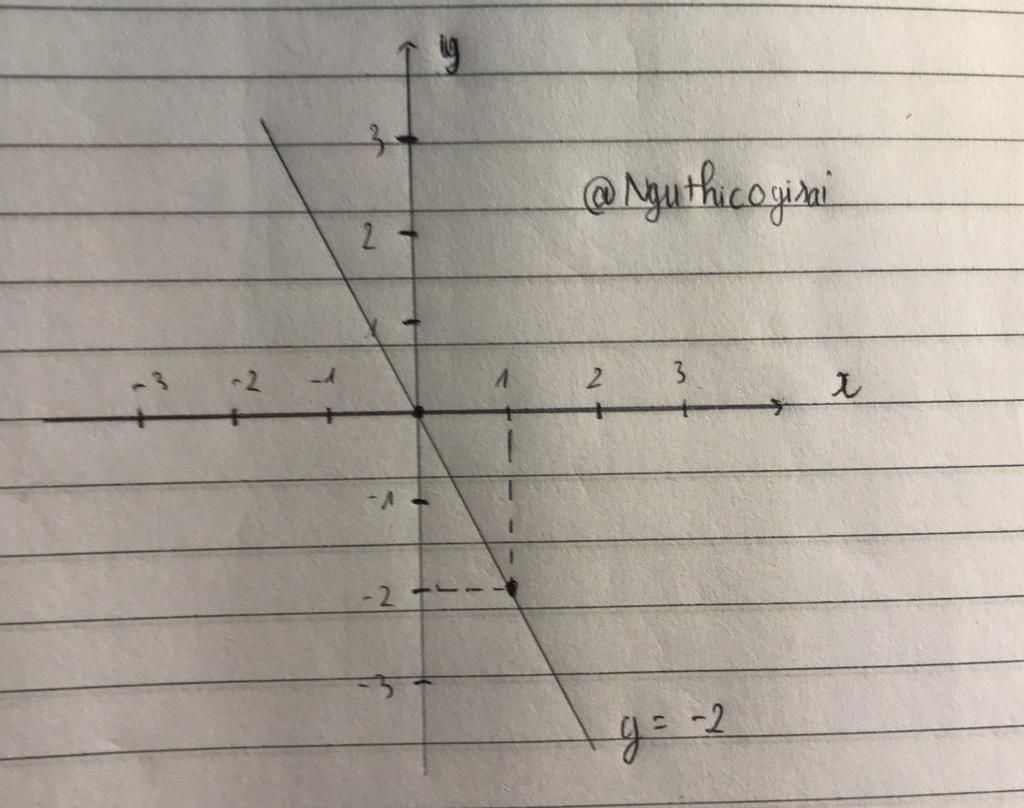 y
3
@Nguthicogisai
2
1
-3 -2 -1 1 2 3 x
-1
-2
-3
y = -2